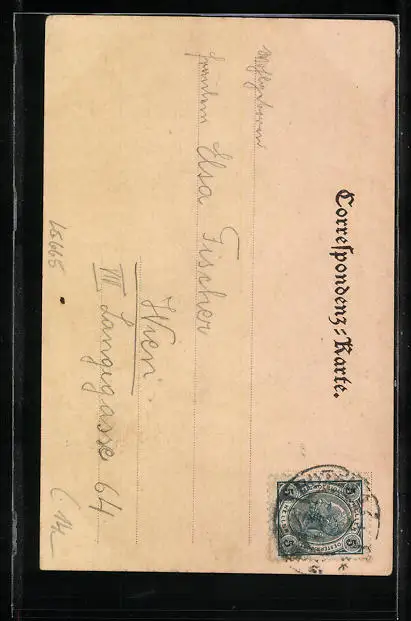 Correspondenz-Karte.
Wohlgeboren
Fräulein Elsa Fischer
Wien
VIII Langegasse 64
5 5
5 5